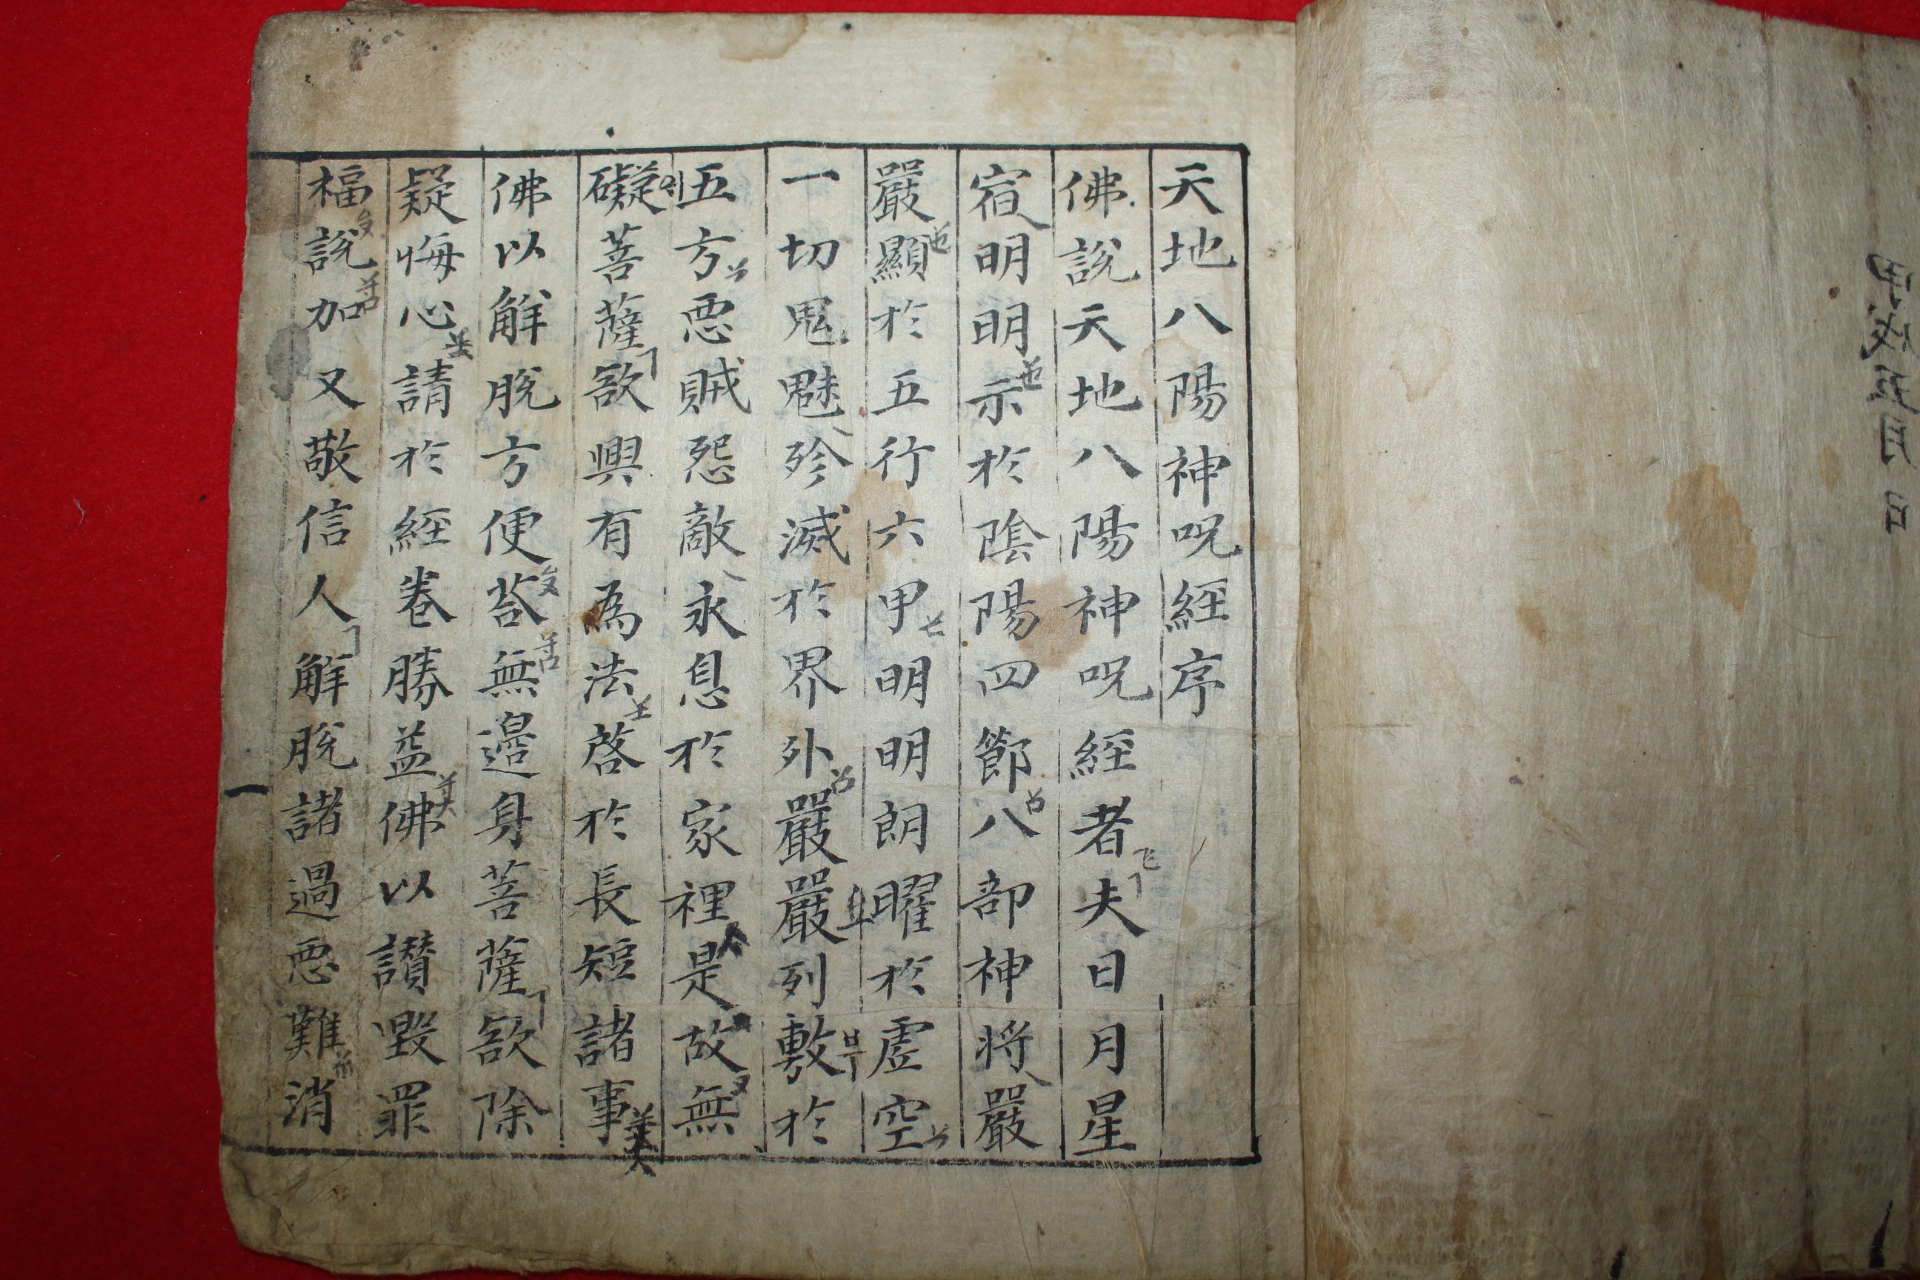 甲戌五月日
天地八陽神呪経序
佛說天地八陽神呪経者夫日月星
宿明明示於陰陽四節八部神将嚴
嚴顯於五行六甲明明朗曜於虛空
一切鬼魅殄滅於界外嚴嚴列敷於
五方悪賊怨敵永息於家裡是故無
礙菩薩欲興有為法啓於長短諸事
佛以觧脫方便荅無邊身菩薩欲除
疑悔心請於経卷勝益佛以讃毀罪
福說加又敬信人觧脫諸過悪難消
一